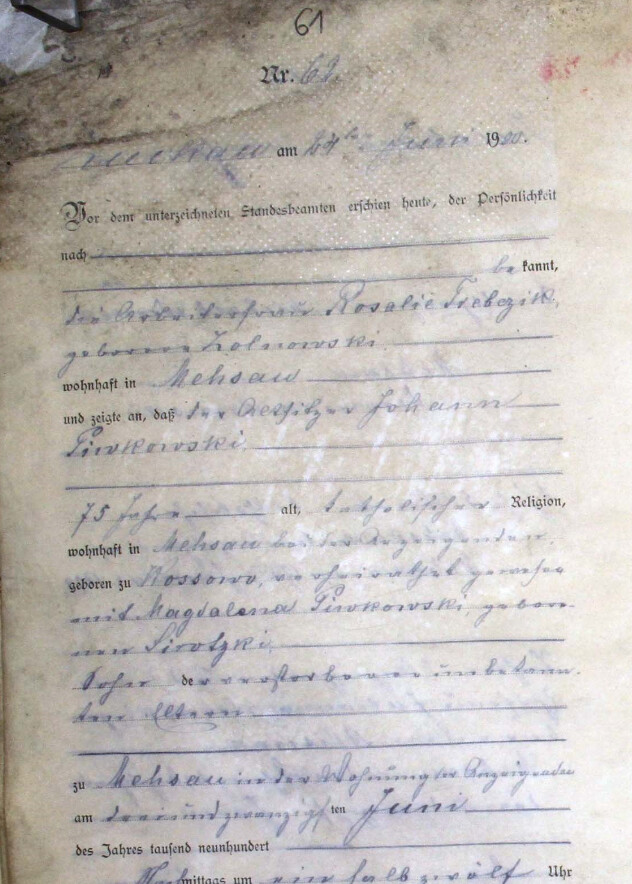 61
Nr. 61.
am 24ten Juni 1900.
Vor dem unterzeichneten Standesbeamten erschien heute, der Persönlichkeit
nach
bekannt,
die Arbeiterfrau Rosalie Trebczik,
geborene
wohnhaft in Mehsau
und zeigte an, daß der Altsitzer Johann
Piwkowski
75 Jahre alt, katholischer Religion,
wohnhaft in Mehsau bei der Anzeigenden,
geboren zu Kossowo, verheirathet gewesen
mit Magdalena Piwkowski, gebore-
nen Sirotzki,
Sohn der verstorbenen unbekann-
ten Eltern
zu Mehsau in der Wohnung der Anzeigenden
am dreiundzwanzigsten Juni
des Jahres tausend neunhundert
Nachmittags um ein halb zwölf Uhr